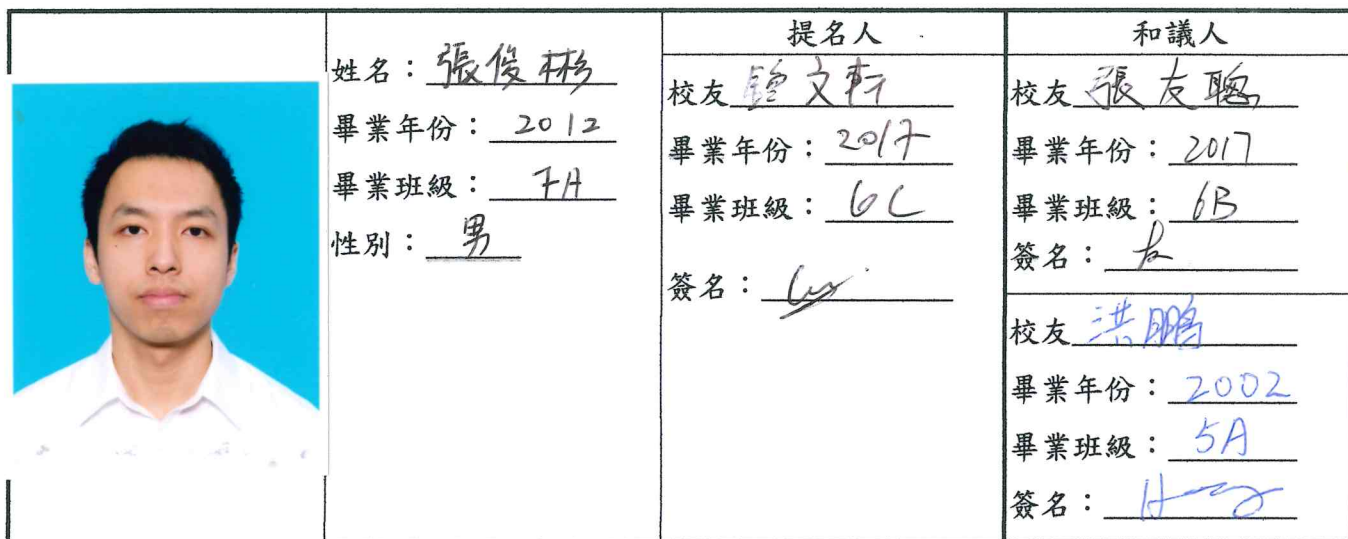 姓名：張俊彬
畢業年份：2012
畢業班級：7A
性別：男
提名人
校友 鍾文軒
畢業年份：2017
畢業班級：6C
簽名：
和議人
校友 張友聰
畢業年份：2017
畢業班級：6B
簽名：友
校友 洪鵬
畢業年份：2002
畢業班級：5A
簽名：